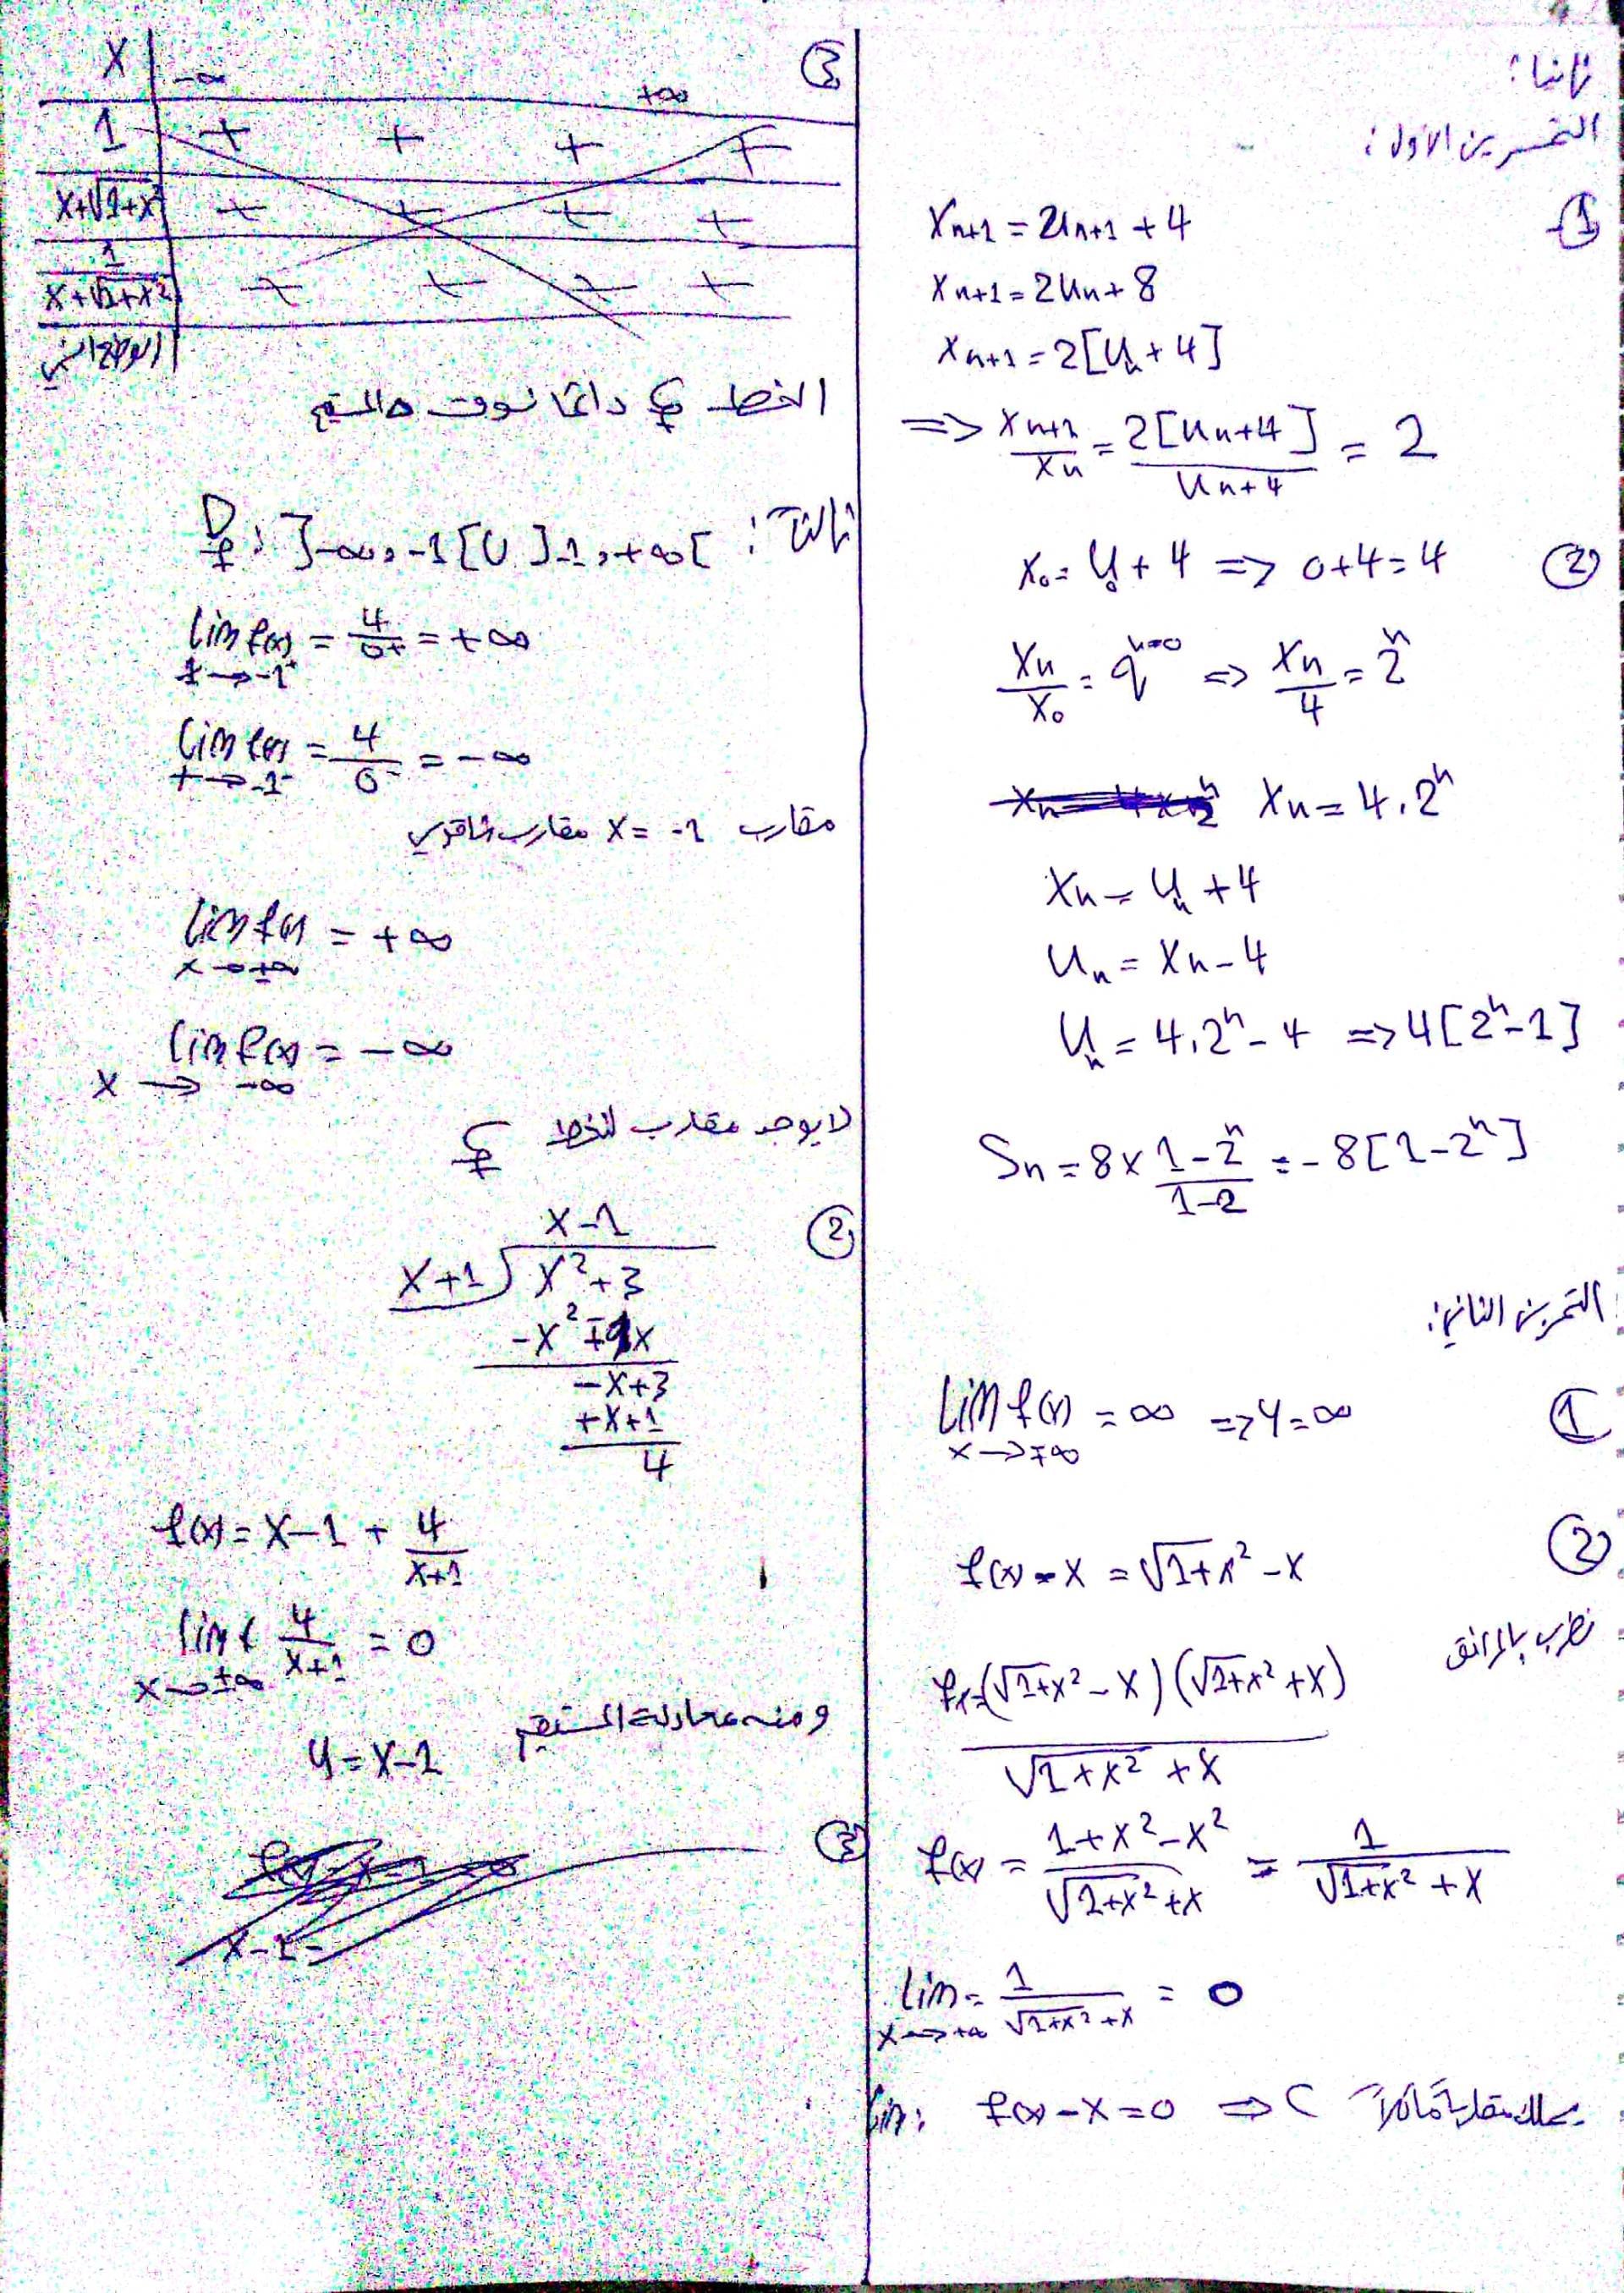 ثانيا:
التمرين الاول:
①
x_{n+1} = u_{n+1} + 4
x_{n+1} = 2u_n + 8
x_{n+1} = 2[u_n + 4]
=> x_{n+1}/x_n = 2[u_n+4]/(u_n+4) = 2
②
x_0 = u_0 + 4 => 0+4=4
x_n/x_0 = q^{n-0} => x_n/4 = 2^n
x_n = 4.2^n
x_n = u_n + 4
u_n = x_n - 4
u_n = 4.2^n - 4 => 4[2^n - 1]
S_n = 8 × (1-2^n)/(1-2) = -8[1-2^n]
التمرين الثاني:
①
lim f(x) = ∞ => y = ∞
x → +∞
②
f(x) - x = √(1+x²) - x
نضرب بالمرافق
(√(1+x²) - x)(√(1+x²) + x)
√(1+x²) + x
f(x) = (1+x²-x²)/(√(1+x²)+x) = 1/(√(1+x²)+x)
lim = 1/(√(1+x²)+x) = 0
x → +∞
lim: f(x) - x = 0 => C
③
x | -∞ +∞
1 + + + +
x+√(1+x²) + + + +
1/(x+√(1+x²)) + + + +
الوضع النسبي
الخط C_f دائما فوق المستقيم
ثالثا: D_f: ]-∞,-1[ U ]-1,+∞[
lim f(x) = 4/0+ = +∞
x → -1+
lim f(x) = 4/0- = -∞
x → -1-
مقارب x = -1 مقارب شاقولي
lim f(x) = +∞
x → +∞
lim f(x) = -∞
x → -∞
لا يوجد مقارب للخط C_f
②
x-1
x+1 ) x²+3
-x² ∓ 1x
-x+3
+x+1
4
f(x) = x-1 + 4/(x+1)
lim 4/(x+1) = 0
x → ±∞
ومنه معادلة المستقيم
y = x-1
③